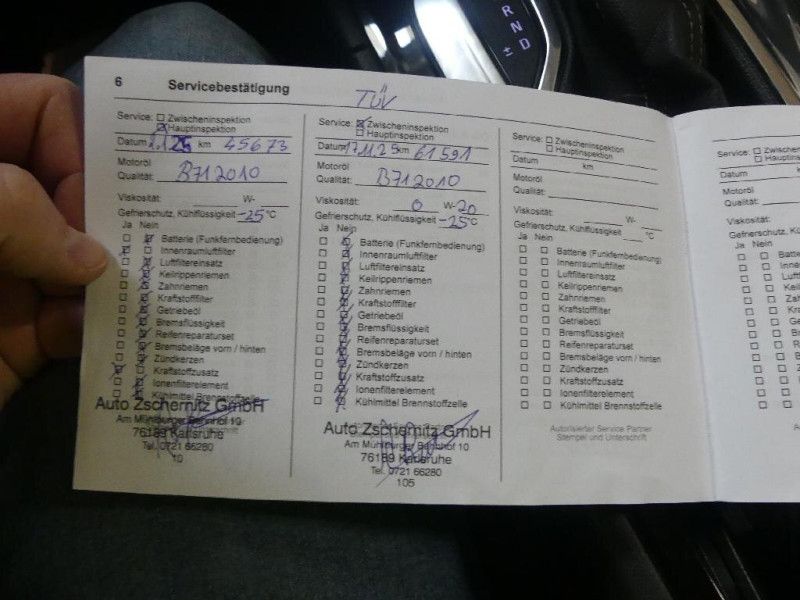 R
N
D
±
6 Servicebestätigung
TÜV
Service: Zwischeninspektion
Hauptinspektion
Datum km 45673
Motoröl
Qualität: B712010
Viskosität: W-
Gefrierschutz, Kühlflüssigkeit -25 °C
Ja Nein
Batterie (Funkfernbedienung)
Innenraumluftfilter
Luftfiltereinsatz
Keilrippenriemen
Zahnriemen
Kraftstofffilter
Getriebeöl
Bremsflüssigkeit
Reifenreparaturset
Bremsbeläge vorn / hinten
Zündkerzen
Kraftstoffzusatz
Ionenfilterelement
Kühlmittel Brennstoffzelle
Auto Zschernitz GmbH
Am Mühlburger Bahnhof 10
76189 Karlsruhe
Tel. 0721 66280
10
Service: Zwischeninspektion
Hauptinspektion
Datum 17.11.25 km 61591
Motoröl
Qualität: B712010
Viskosität: 0 W-20
Gefrierschutz, Kühlflüssigkeit -25 °C
Ja Nein
Batterie (Funkfernbedienung)
Innenraumluftfilter
Luftfiltereinsatz
Keilrippenriemen
Zahnriemen
Kraftstofffilter
Getriebeöl
Bremsflüssigkeit
Reifenreparaturset
Bremsbeläge vorn / hinten
Zündkerzen
Kraftstoffzusatz
Ionenfilterelement
Kühlmittel Brennstoffzelle
Auto Zschernitz GmbH
Am Mühlburger Bahnhof 10
76189 Karlsruhe
Tel. 0721 66280
105
Service: Zwischeninspektion
Hauptinspektion
Datum km
Motoröl
Qualität:
Viskosität: W-
Gefrierschutz, Kühlflüssigkeit °C
Ja Nein
Batterie (Funkfernbedienung)
Innenraumluftfilter
Luftfiltereinsatz
Keilrippenriemen
Zahnriemen
Kraftstofffilter
Getriebeöl
Bremsflüssigkeit
Reifenreparaturset
Bremsbeläge vorn / hinten
Zündkerzen
Kraftstoffzusatz
Ionenfilterelement
Kühlmittel Brennstoffzelle
Autorisierter Service Partner
Stempel und Unterschrift
Service:
Datum
Motoröl
Qualität:
Viskosität:
Gefrierschutz,
Ja Nein